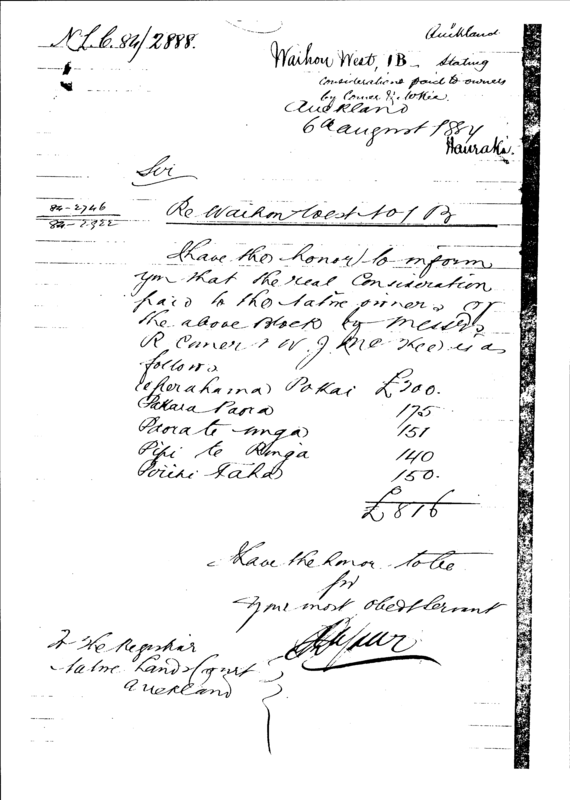 N.L.C. 84/2888.
Auckland
Waihou West, 1B - Stating
considerations paid to owners
by Comer &
Auckland
6th August 1884
Hauraki.
Sir
84-2746
84-2322
Re Waihou West No 1 B
I have the honor to inform
you that the real Consideration
paid to the Native owners of
the above Block by Messrs
R Comer & W. J. McKee is as
follows
Aperahama Pokai £200.
Pakara Paora 175
Paora te 151
Pipi te Ringa 140
Taha 150.
£816
I have the honor to be
Sir
Your most obedt Servant
To the Registrar
Native Lands Court
Auckland